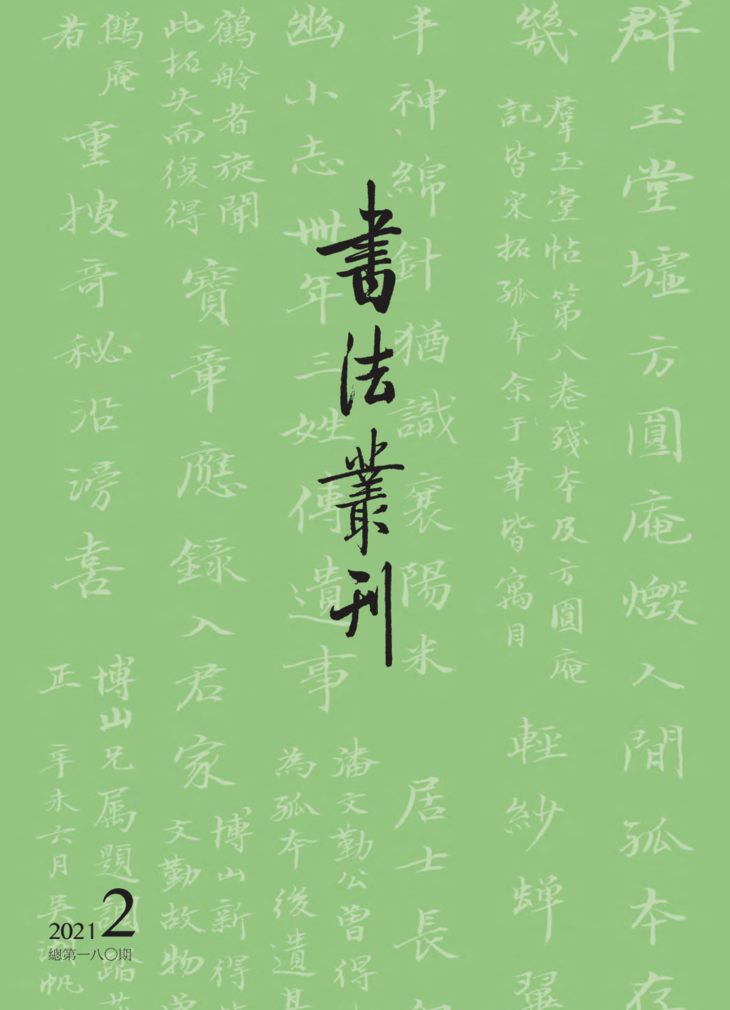 書法叢刊
2021 2
總第一八〇期
群玉堂墟方圓庵燬人間孤本存
幾
羣玉堂帖第八卷殘本及方圓庵
記皆宋拓孤本余于幸皆寓目
輕紗蟬翼
丰神綿針猶識襄陽米
居士長
幽小志卌年三姓傳遺事
潘文勤公曾得
為孤本後遺其
鶴舲者旋聞
此拓失而復得
寶章應錄入君家
博山新得
文勤故物
鶴庵
者
重搜奇秘沿滂喜
博山兄属題
正
辛未六月吳湖帆